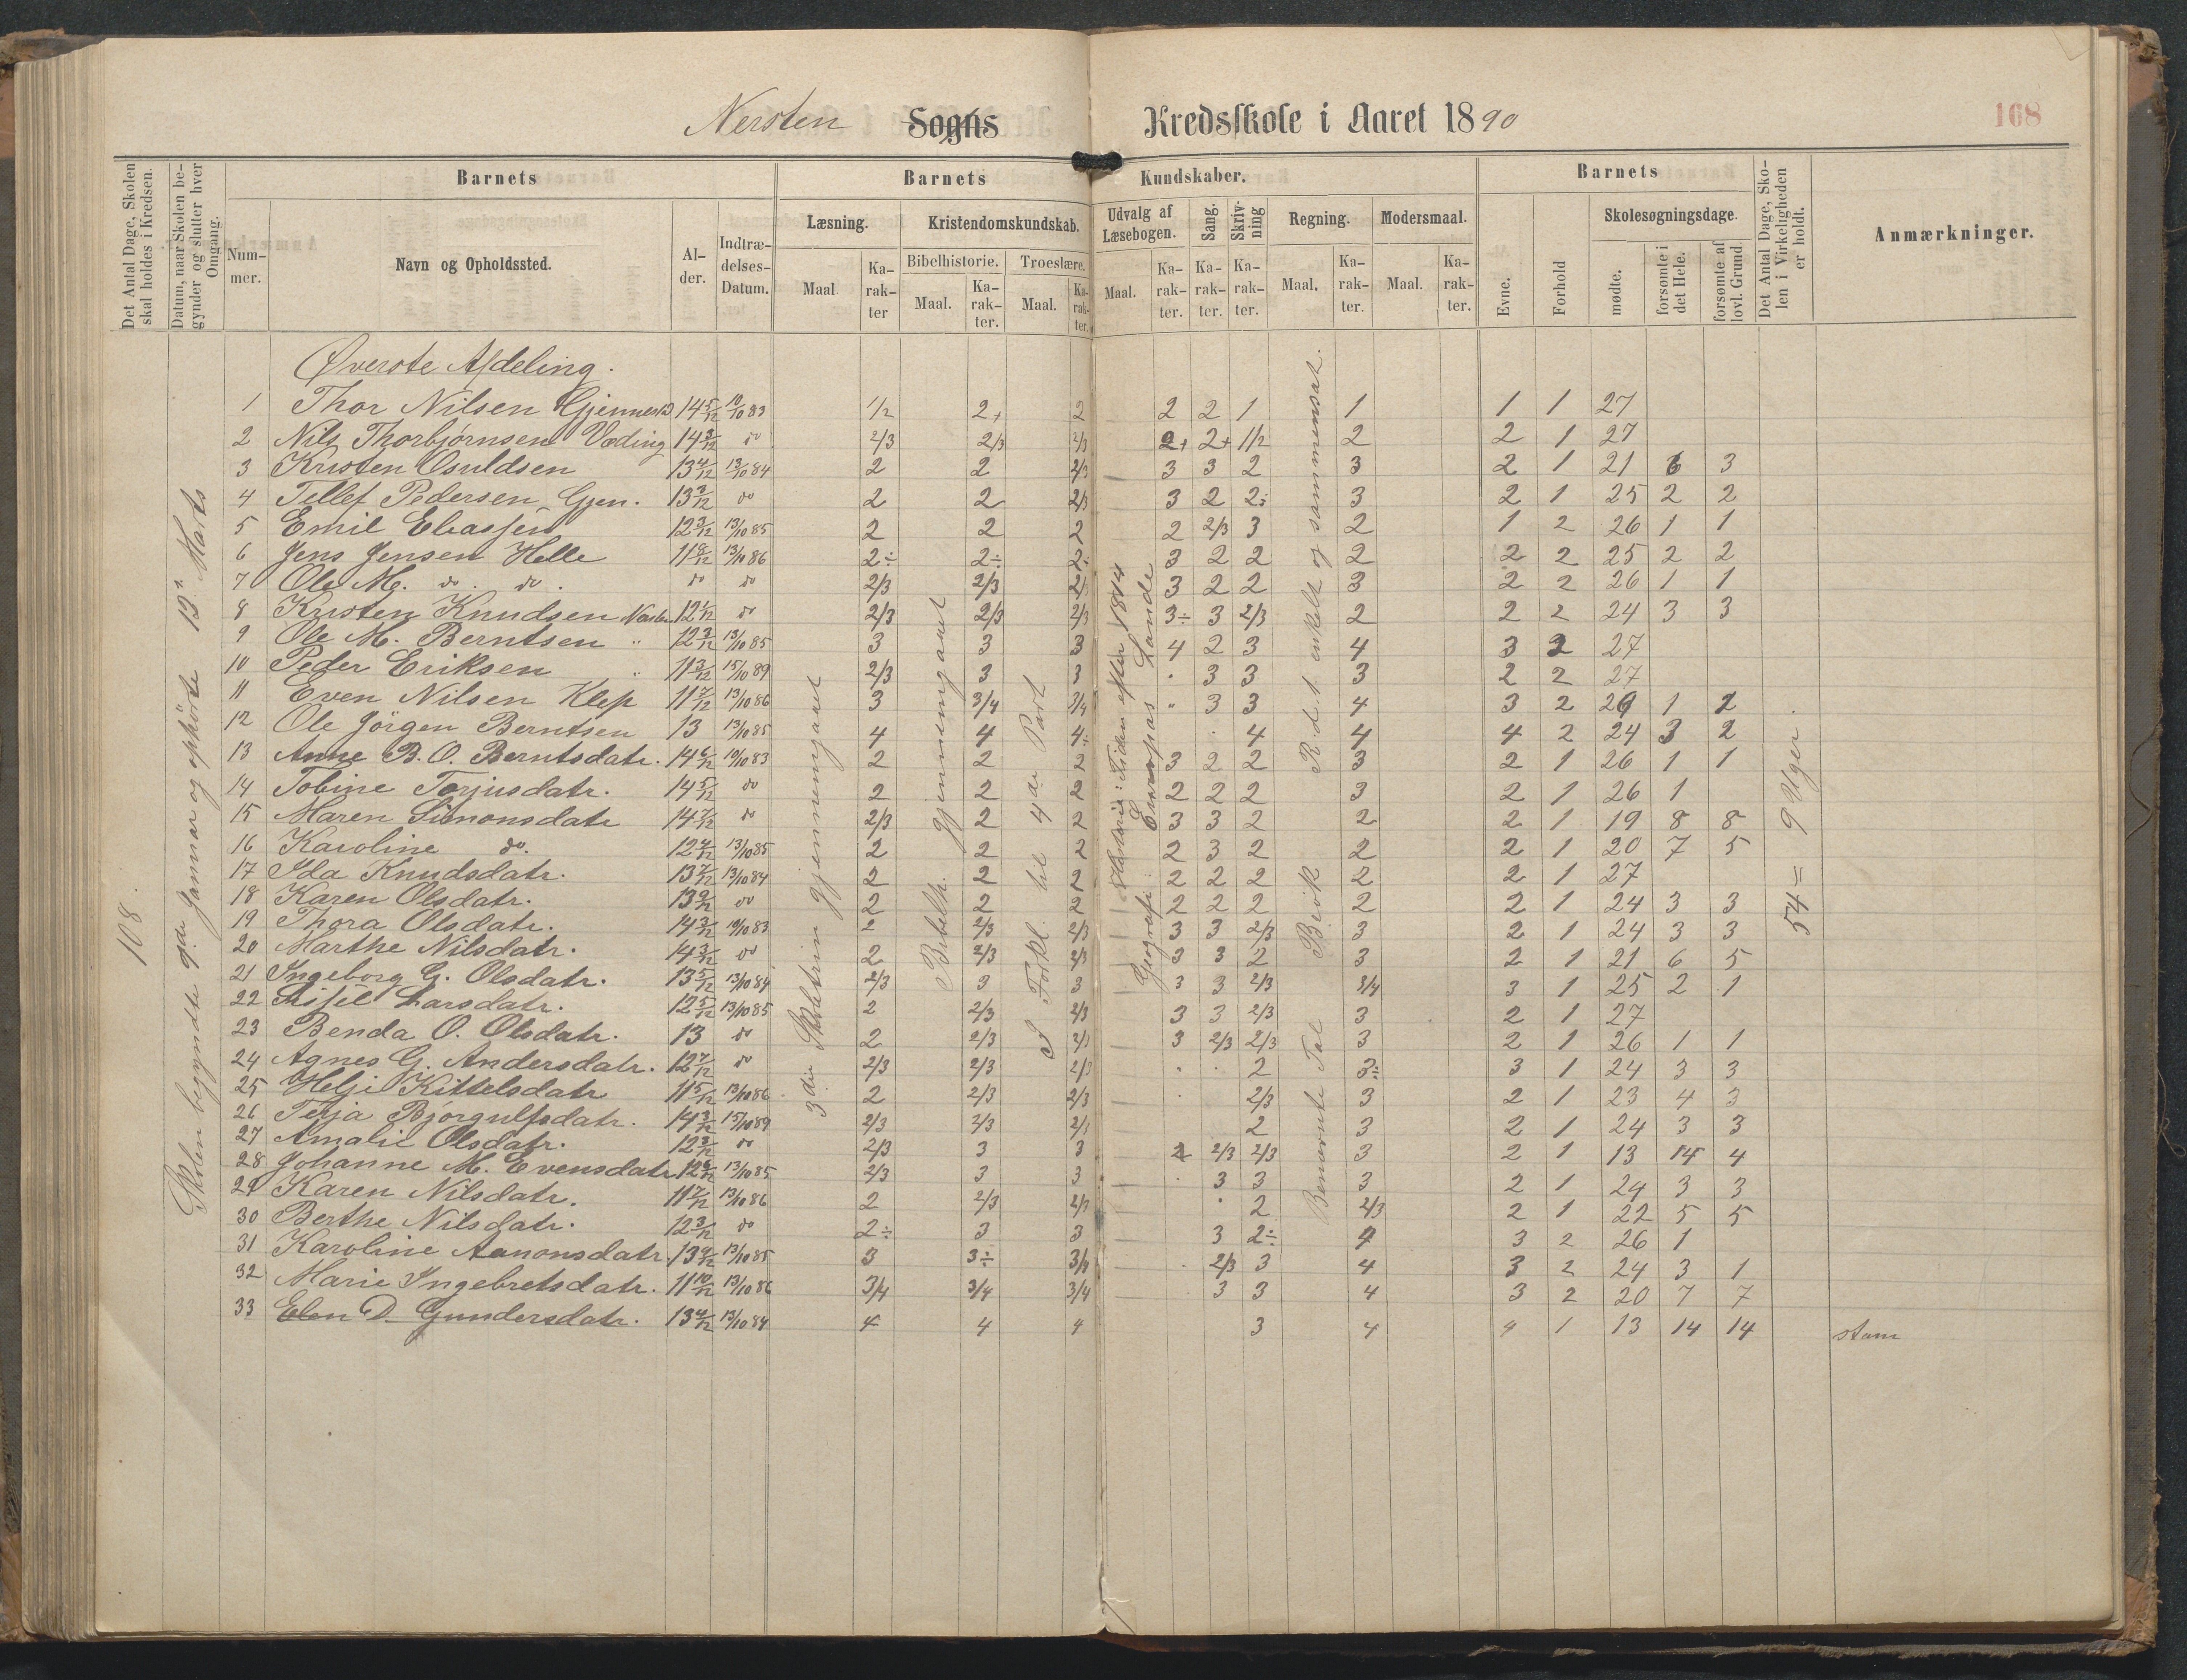 Nersten Sogns Kredsskole i Aaret 1890
168
Det Antal Dage, Skolen skal holdes i Kredsen.
Datum, naar Skolen begynder og slutter hver Omgang.
Barnets
Nummer.
Navn og Opholdssted.
Alder.
Indtrædelses-Datum.
Barnets Kundskaber.
Læsning.
Maal
Karakter
Kristendomskundskab.
Bibelhistorie.
Maal.
Karakter.
Troeslære.
Maal.
Karakter.
Udvalg af Læsebogen.
Maal.
Karakter.
Sang.
Karakter.
Skrivning
Karakter.
Regning.
Maal.
Karakter.
Modersmaal.
Maal.
Karakter.
Barnets
Evne.
Forhold
Skolesøgningsdage.
mødte.
forsømte i det Hele.
forsømte af lovl. Grund
Det Antal Dage, Skolen i Virkeligheden er holdt.
Anmærkninger.
108.
Skolen begyndte 9de Januar og ophørte 13de Marts
3die Skoletrin gjennemgaaet
Bibelh. gjennemgaaet
I Forkl. til 4de Part
Historie: Tiden efter 1814
Geografi: Europas Lande
Benævnte Tal Brøk R. d. t. enkelt og sammensat.
54 = 9 Uger.
Øverste Afdeling.
1 Thor Nilsen 14 5/12 10/10 83 1/2 2+ 2 2 2 1 1 1 1 27
2 Nils Thorbjørnsen Væding 14 3/12 do 2/3 2/3 2/3 2+ 2+ 1/2 2 2 1 27
3 Kristen Osuldsen 13 4/12 13/10 84 2 2 2/3 3 3 2 3 2 1 21 6 3
4 Tellef Pedersen Gjen. 13 3/12 do 2 2 2/3 3 2 2÷ 3 2 1 25 2 2
5 Emil Eliassen 12 3/12 13/10 85 2 2 2 2 2/3 3 2 1 2 26 1 1
6 Jens Jensen Helle 11 8/12 13/10 86 2÷ 2÷ 2÷ 3 2 2 2 2 2 25 2 2
7 Ole M. do. do. do do 2/3 2/3 2/3 3 2 2 3 2 2 26 1 1
8 Kristen Knudsen Nersten 12 1/12 do 2/3 2/3 2/3 3÷ 3 2/3 2 2 2 24 3 3
9 Ole M. Berntsen " 12 3/12 13/10 85 3 3 3 4 2 3 4 3 2 27
10 Peder Eriksen " 11 3/12 15/10 89 2/3 3 3 . 3 3 3 2 2 27
11 Even Nilsen Klep 11 7/12 13/10 86 3 3/4 3/4 " 3 3 4 3 2 26 1 1
12 Ole Jörgen Berntsen 13 13/10 85 4 4 4÷ . 4 4 4 2 24 3 2
13 Anne B. O. Berntsdatr. 14 6/12 10/10 83 2 2 2 3 2 2 3 2 1 26 1 1
14 Tobine Torjusdatr. 14 5/12 do 2 2 2 2 2 2 3 2 1 26 1
15 Maren Simonsdatr 14 7/12 do 2/3 2 2 3 3 2 2 2 1 19 8 8
16 Karoline do. 12 4/12 13/10 85 2 2 2 2 3 2 2 2 1 20 7 5
17 Ida Knudsdatr. 13 7/12 13/10 84 2 2 2 2 2 2 2 2 1 27
18 Karen Olsdatr. 13 9/12 do 2 2 2 2 2 2 2 2 1 24 3 3
19 Thora Olsdatr. 14 3/12 10/10 83 2 2/3 2/3 3 3 2/3 3 2 1 24 3 3
20 Marthe Nilsdatr. 14 3/12 do 2 2/3 2/3 3 3 2 3 2 1 21 6 5
21 Ingeborg G. Olsdatr. 13 5/12 13/10 84 2/3 3 3 3 3 2/3 3/4 3 1 25 2 1
22 Larsdatr. 12 5/12 13/10 85 2 2/3 2/3 3 3 2/3 3 2 1 27
23 Benda O. Olsdatr. 13 do 2 2/3 2/3 3 2/3 2/3 3 2 1 26 1 1
24 Agnes G. Andersdatr. 12 7/12 do 2/3 2/3 2/3 . . 2 3÷ 3 1 24 3 3
25 Helji Kittelsdatr 11 5/12 13/10 86 2 2/3 2/3 . 2/3 3 2 1 23 4 3
26 Terja Bjørgulfsdatr. 14 3/12 15/10 89 2/3 2/3 2/3 2 3 2 1 24 3 3
27 Amalie Olsdatr. 12 3/12 do 2/3 3 3 2 2/3 2/3 3 2 1 13 14 4
28 Johanne M. Evensdatr 12 6/12 13/10 85 2/3 3 3 . 3 3 3 2 1 24 3 3
29 Karen Nilsdatr. 11 7/12 13/10 86 2 2/3 2/3 . 2 2/3 2 1 22 5 5
30 Berthe Nilsdatr. 12 3/12 do 2÷ 3 3 3 2÷ 4 3 2 26 1
31 Karoline Aanonsdatr. 13 9/12 13/10 85 3 3÷ 3/4 . 2/3 3 4 3 2 24 3 1
32 Marie Ingebretsdatr. 11 10/12 13/10 86 3/4 3/4 3/4 3 3 4 3 2 20 7 7
33 Elen D. Gundersdatr. 13 4/12 13/10 84 4 4 4 3 4 4 1 13 14 14 stam